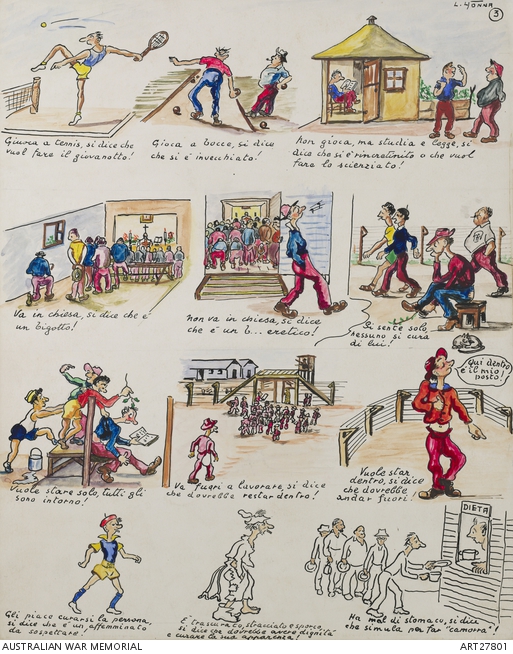 L. HONNA
3
Giuoca a tennis, si dice che
vuol fare il giovanotto!
Gioca a bocce, si dice
che si è invecchiato!
Non gioca, ma studia e legge, si
dice che si è rincretinito o che vuol
fare lo scienziato!
Va in chiesa, si dice che è
un bigotto!
Non va in chiesa, si dice
che è un b... eretico!
Si sente solo,
nessuno si cura
di lui!
Qui dentro
è il mio
posto!
Vuole stare solo, tutti gli
sono intorno!
Va fuori a lavorare, si dice
che dovrebbe restar dentro!
Vuole star
dentro, si dice
che dovrebbe
andar fuori!
DIETA
Gli piace curarsi la persona,
si dice che è un effemminato
da sospettare!
È trascurato, stracciato e sporco,
si dice che dovrebbe avere dignità
e curare la sua apparenza!
Ha mal di stomaco, si dice
che simula per far "camorra"!
AUSTRALIAN WAR MEMORIAL
ART27801